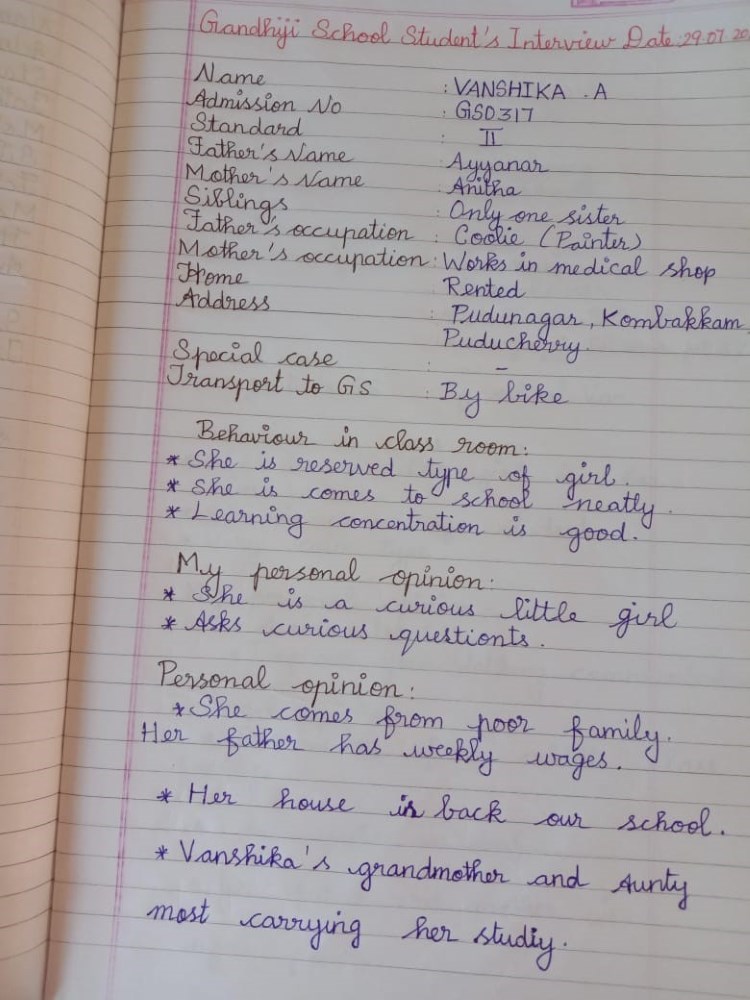 Gandhiji School Student's Interview Date:29.07.20
Name : VANSHIKA . A
Admission No : GSD317
Standard : II
Father's Name : Ayyanar
Mother's Name : Anitha
Siblings : Only one sister
Father's occupation : Coolie (Painter)
Mother's occupation : Works in medical shop
Home : Rented
Address : Pudunagar, Kombakkam
Puducherry.
Special case : -
Transport to GS : By bike
Behaviour in class room:
* She is reserved type of girl.
* She is comes to school neatly.
* Learning concentration is good.
My personal opinion:
* She is a curious little girl
* Asks curious questionts.
Personal opinion:
* She comes from poor family.
Her father has weekly wages.
* Her house is back our school.
* Vanshika's grandmother and Aunty
most carrying her studiy.